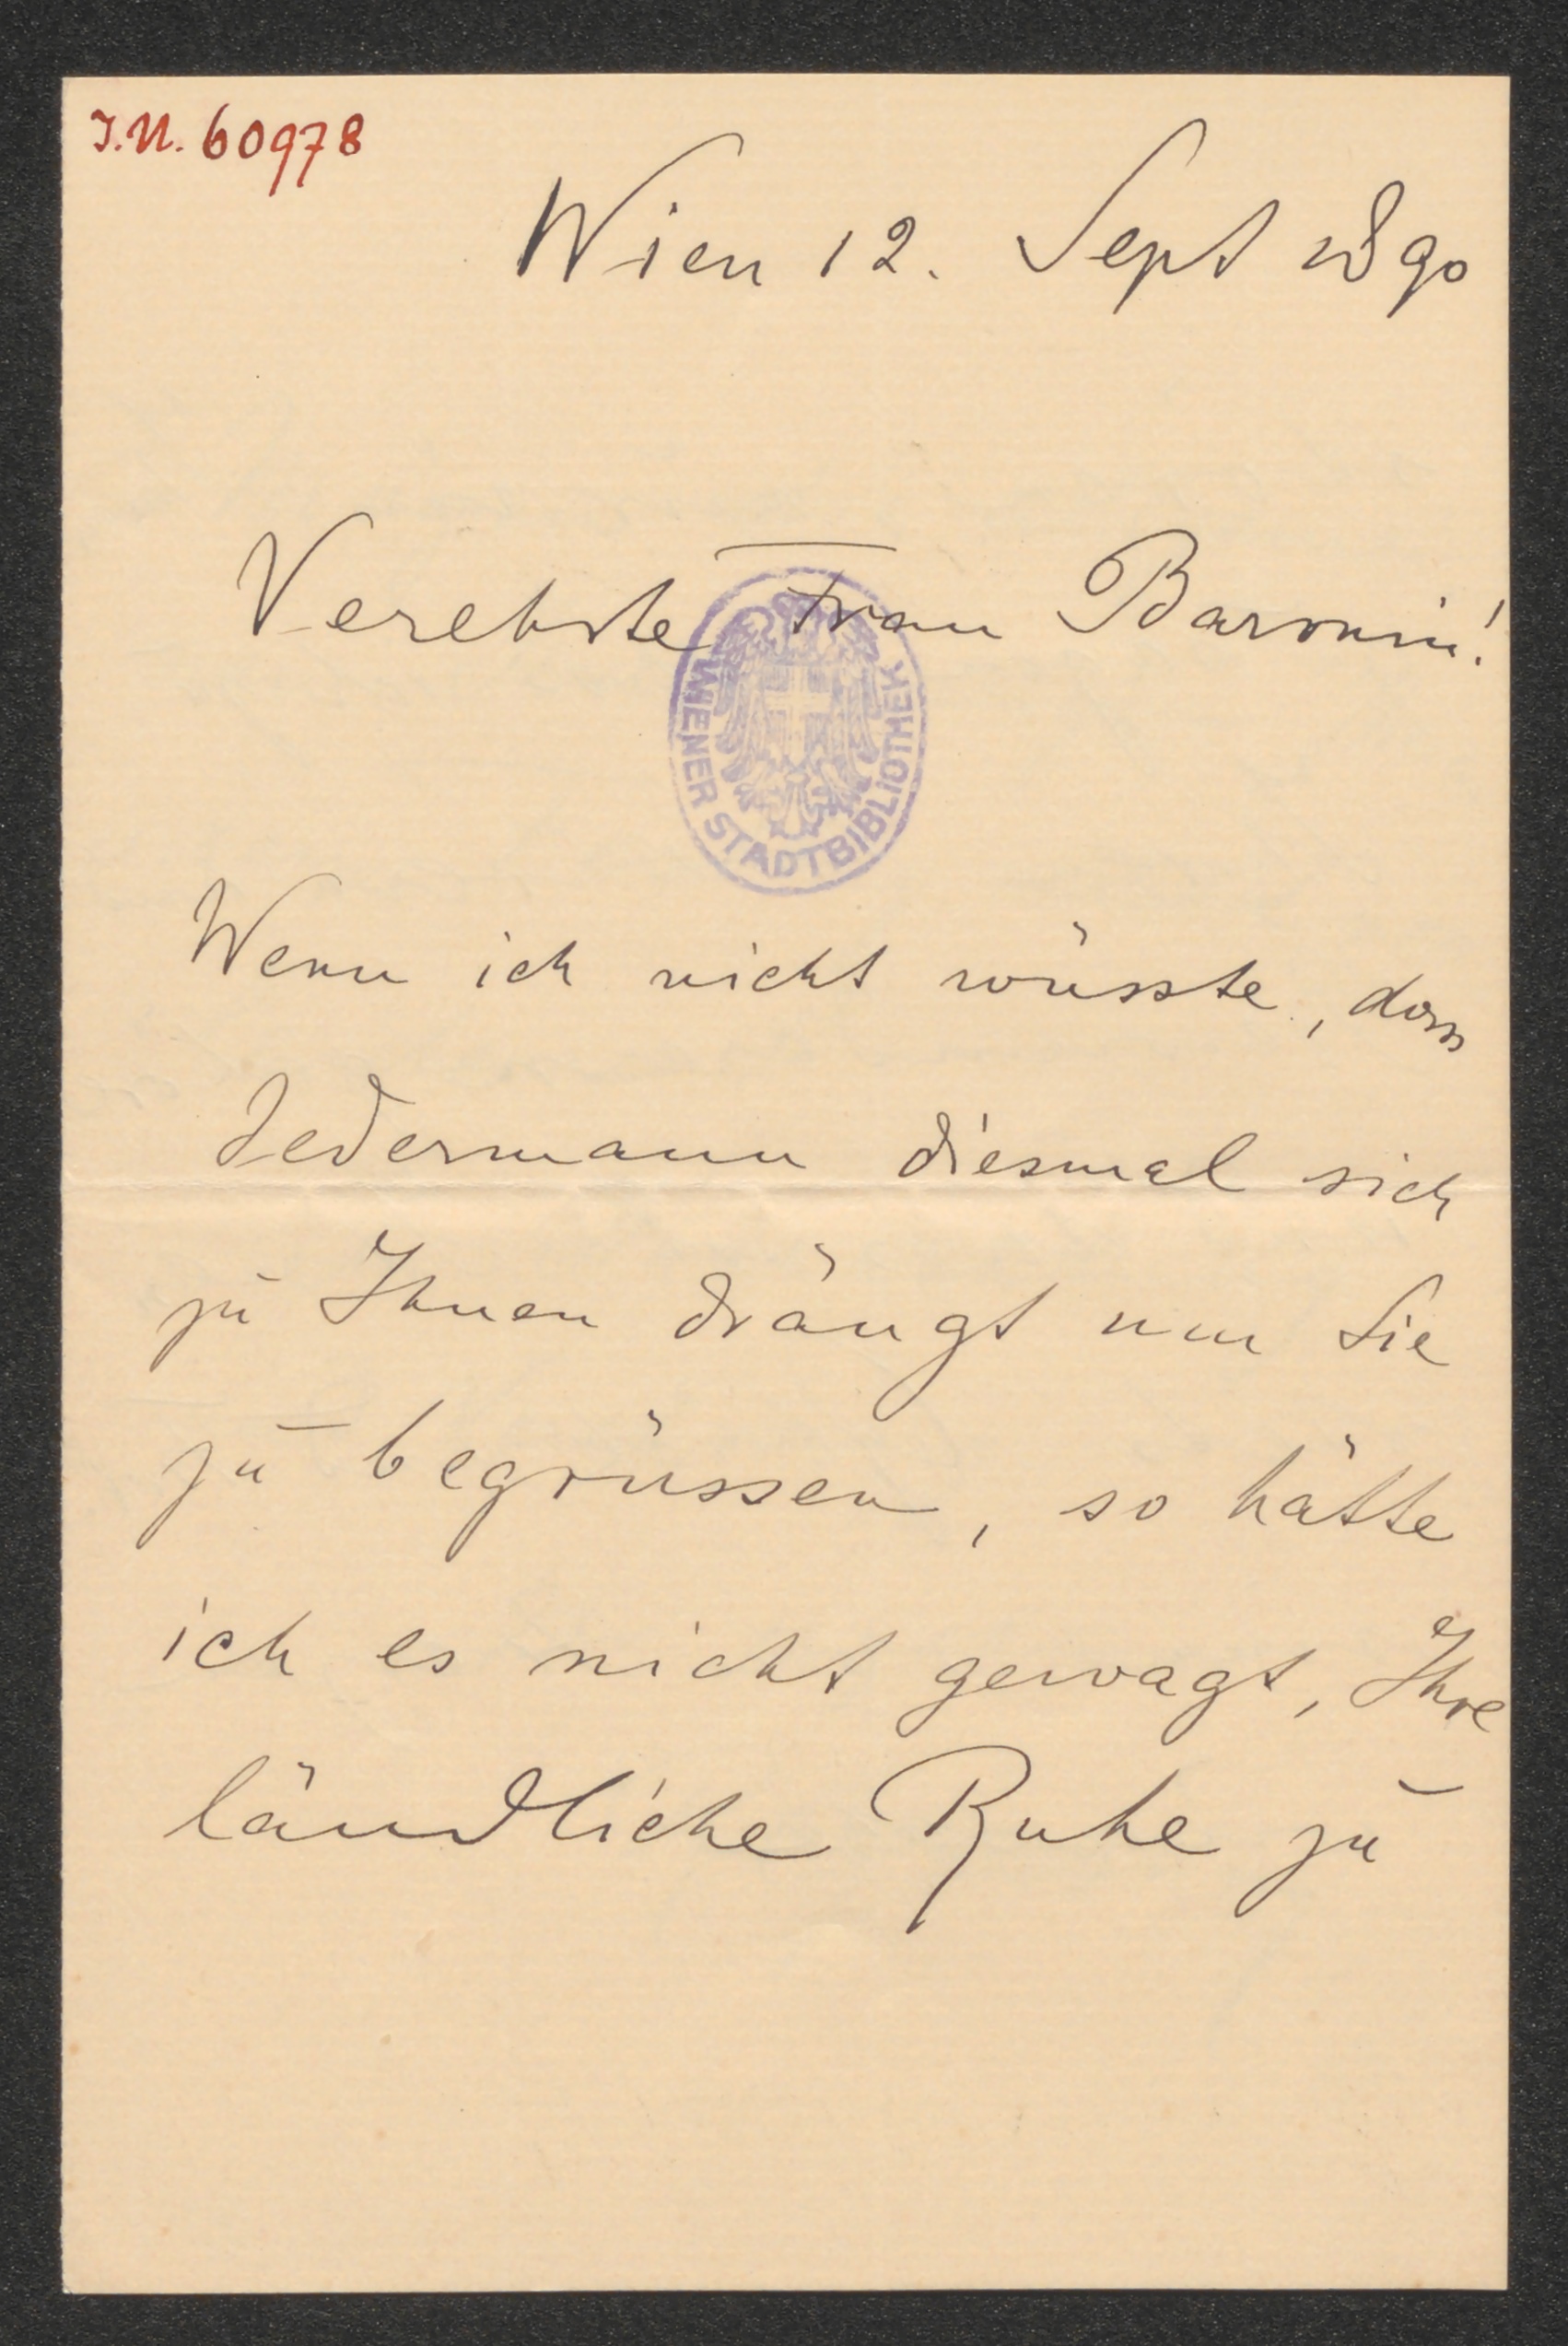 I.N. 60978
Wien 12. Sept 1890
Verehrte Frau Baronin!
WIENER STADTBIBLIOTHEK
Wenn ich nicht wüsste, dass
Jedermann diesmal sich
zu Ihnen drängt um Sie
zu begrüssen, so hätte
ich es nicht gewagt, Ihre
ländliche Ruhe zu